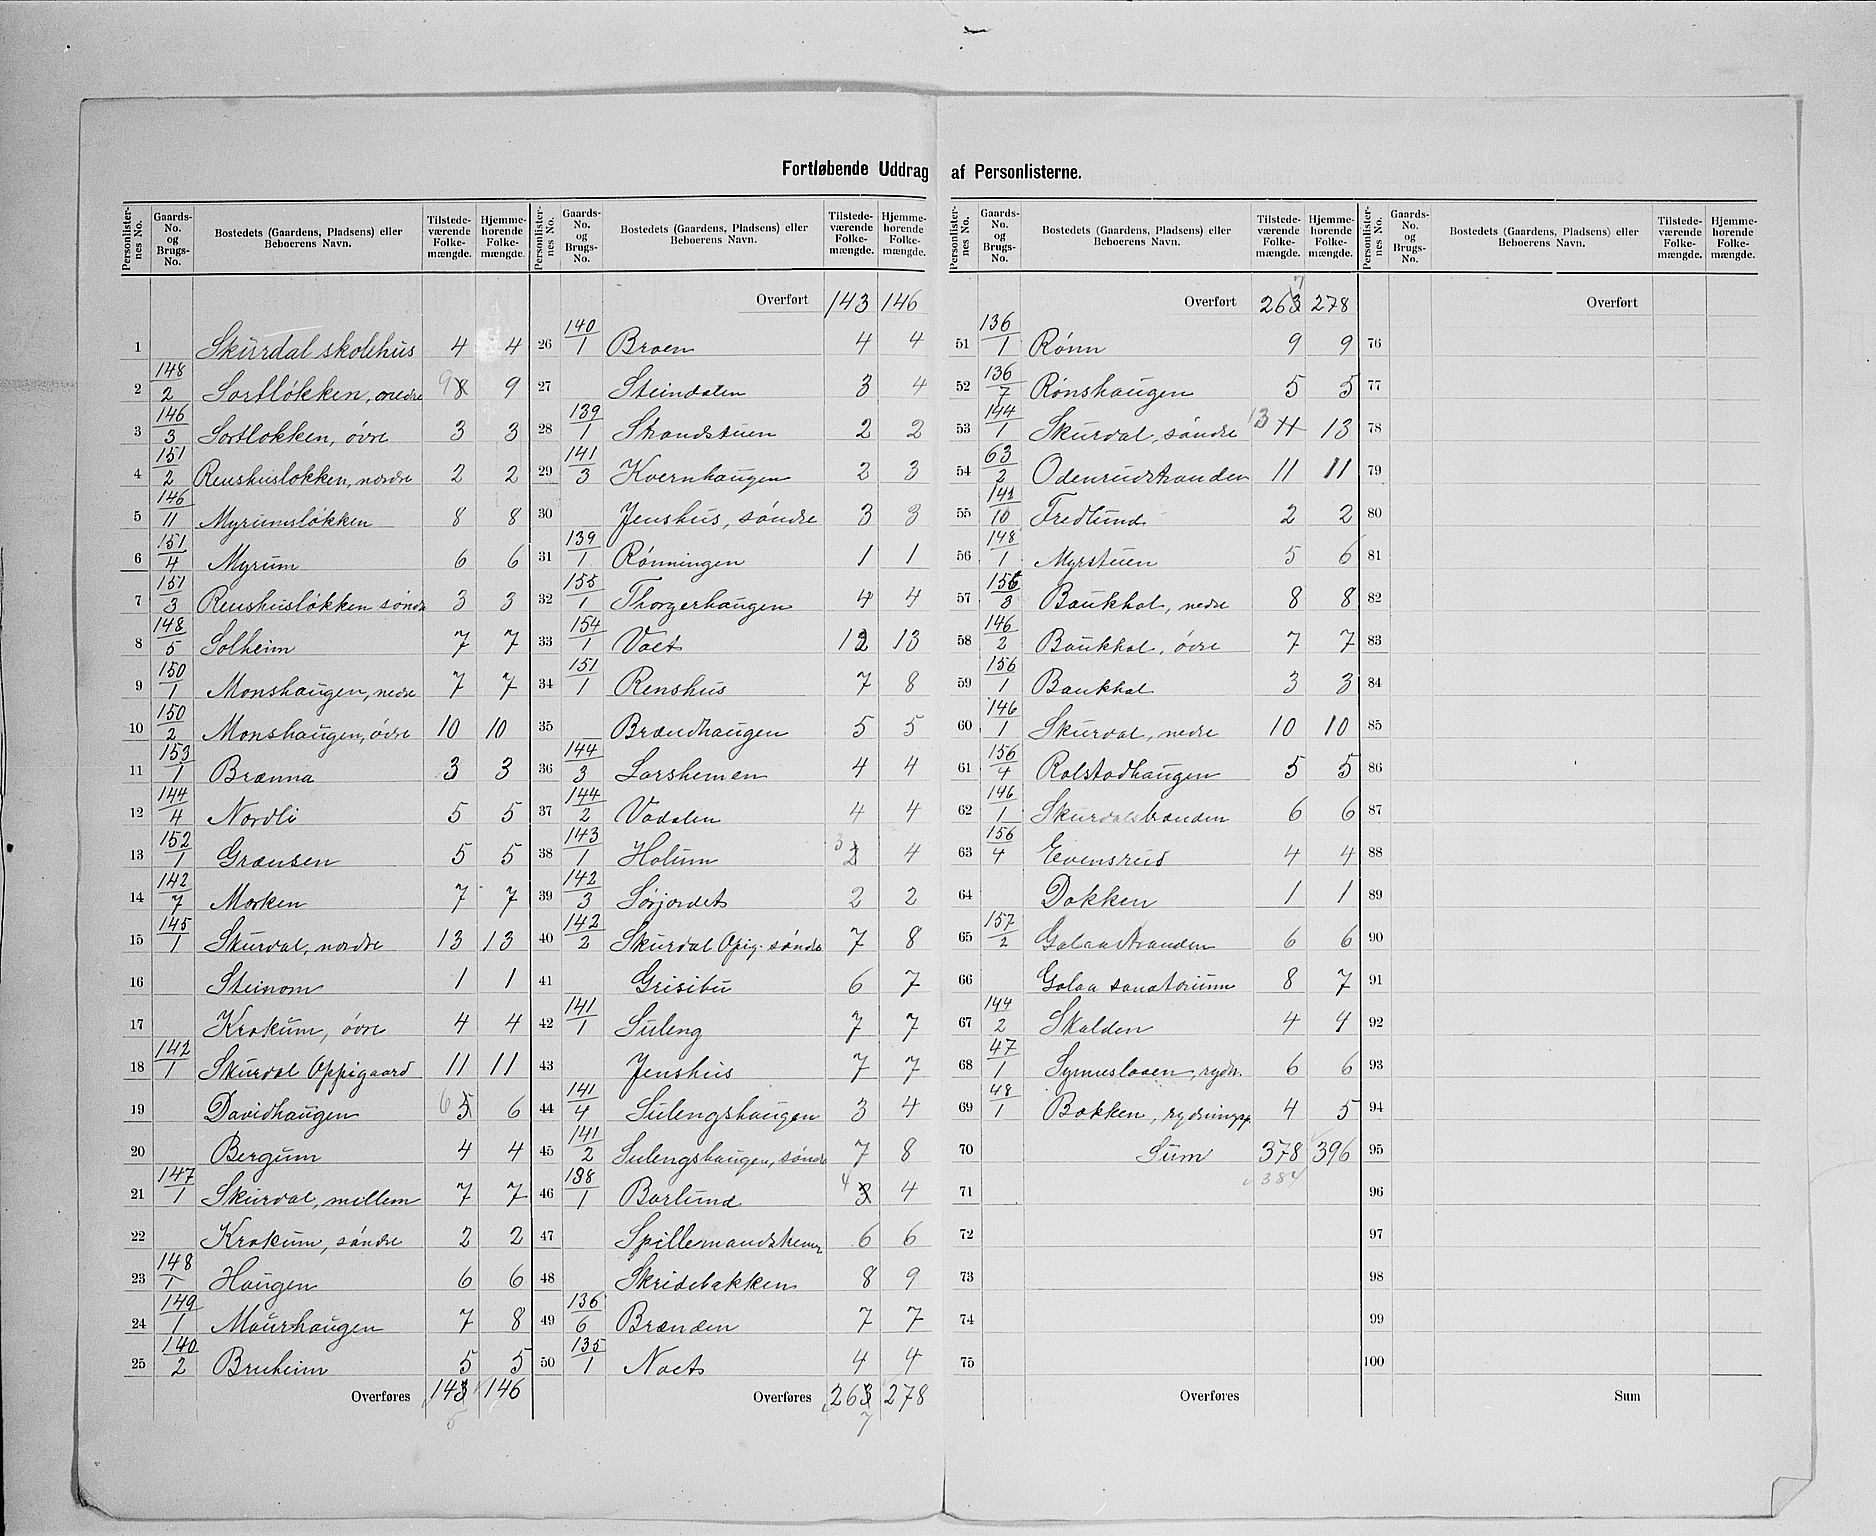 Fortløbende Uddrag af Personlisterne.
Personlisternes No. | Gaards-No. og Brugs-No. | Bostedets (Gaardens, Pladsens) eller Beboerens Navn. | Tilstedeværende Folkemængde. | Hjemmehørende Folkemængde.
1 Skurdal skolehus 4 4
2 148/2 Sortløkken, nedre 9 8 9
3 146/3 Sortløkken, øvre 3 3
4 151/2 Renshusløkken, nordre 2 2
5 146/11 Myrumsløkken 8 8
6 151/4 Myrum 6 6
7 151/3 Renshusløkken søndr 3 3
8 148/5 Solheim 7 7
9 150/1 Monshaugen, nedre 7 7
10 150/2 Monshaugen, øvre 10 10
11 153/1 Brænna 3 3
12 144/4 Nordli 5 5
13 152/1 Grænsen 5 5
14 142/7 Morken 7 7
15 145/1 Skurdal, nordre 13 13
16 Steinom 1 1
17 Krokum, øvre 4 4
18 142/1 Skurdal Oppigaard 11 11
19 Davidhaugen 6 5 6
20 Bergum 4 4
21 147/1 Skurdal, millem 7 7
22 Krokum, søndre 2 2
23 148/1 Haugen 6 6
24 149/1 Maurhaugen 7 8
25 140/2 Bruheim 5 5
Overføres 143 146
5
Personlisternes No. | Gaards-No. og Brugs-No. | Bostedets (Gaardens, Pladsens) eller Beboerens Navn. | Tilstedeværende Folkemængde. | Hjemmehørende Folkemængde.
Overført 143 146
26 140/1 Broen 4 4
27 Steindalen 3 4
28 139/1 Strandstuen 2 2
29 141/3 Kvernhaugen 2 3
30 Jenshus, søndre 3 3
31 139/1 Rønningen 1 1
32 155/1 Thorgerhaugen 4 4
33 154/1 Voet 12 13
34 151/1 Renshus 7 8
35 Brændhaugen 5 5
36 144/3 Larshemen 4 4
37 144/2 Vadalen 4 4
38 143/1 Holum 3 2 4
39 142/3 Sørjordet 2 2
40 142/2 Skurdal Opig. søndr 7 8
41 Grisibu 6 7
42 141/1 Suleng 7 7
43 Jenshus 7 7
44 141/4 Sulengshaugen 3 4
45 141/2 Sulengshaugen, søndre 7 8
46 138/1 Borlund 4 3 4
47 Spillemandshemen 6 6
48 Skridebakken 8 9
49 136/6 Brænden 7 7
50 135/1 Noet 4 4
Overføres 263 278
7
Personlisternes No. | Gaards-No. og Brugs-No. | Bostedets (Gaardens, Pladsens) eller Beboerens Navn. | Tilstedeværende Folkemængde. | Hjemmehørende Folkemængde.
7
Overført 263 278
51 136/1 Rønn 9 9
52 136/7 Rønshaugen 5 5
53 144/1 Skurdal, søndre 13 11 13
54 63/2 Odenrudstranden 11 11
55 141/10 Fredlund 2 2
56 148/1 Myrstuen 5 6
57 156/3 Baukhol, nedre 8 8
58 146/2 Baukhol, øvre 7 7
59 156/1 Baukhol 3 3
60 146/1 Skurdal, nedre 10 10
61 156/4 Rolstadhaugen 5 5
62 146/1 Skurdalsbrænden 6 6
63 156/4 Evensrud 4 4
64 Dokken 1 1
65 157/2 Golaastranden 6 6
66 Golaa sanatorium 8 7
67 144/2 Skalden 4 4
68 47/1 Synneslaaen, rydn. 6 6
69 48/1 Bakken, rydningspl. 4 5
70 Sum 378 396
71 384
72
73
74
75
Overføres
Personlisternes No. | Gaards-No. og Brugs-No. | Bostedets (Gaardens, Pladsens) eller Beboerens Navn. | Tilstedeværende Folkemængde. | Hjemmehørende Folkemængde.
Overført
76
77
78
79
80
81
82
83
84
85
86
87
88
89
90
91
92
93
94
95
96
97
98
99
100
Sum